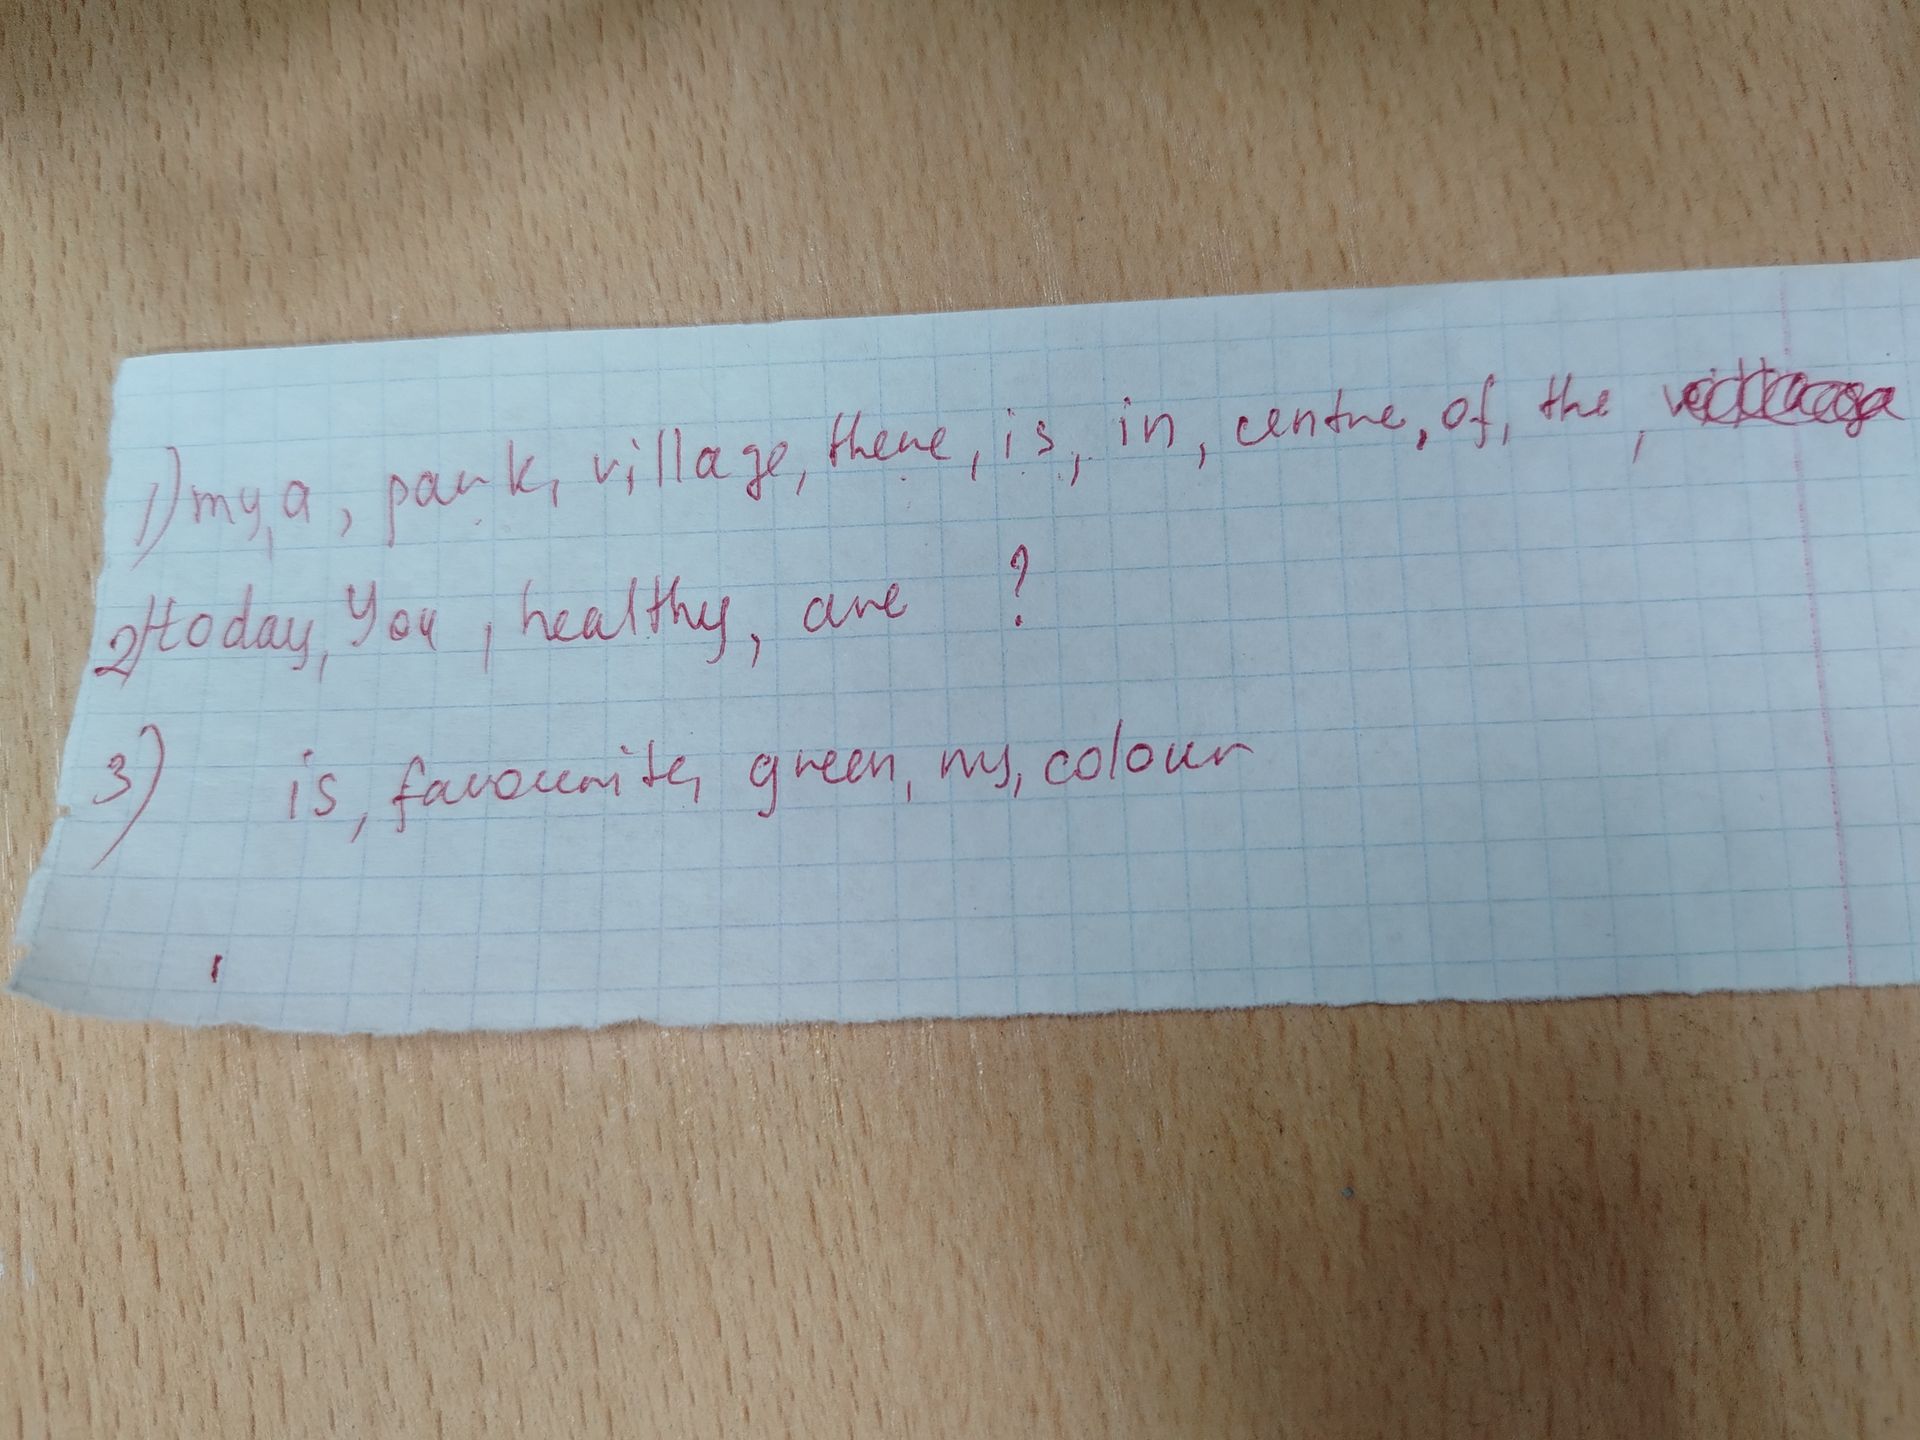 1) my, a, park, village, there, is, in, centre, of, the,
2) today, You, healthy, are ?
3) is, favourite, green, my, colour